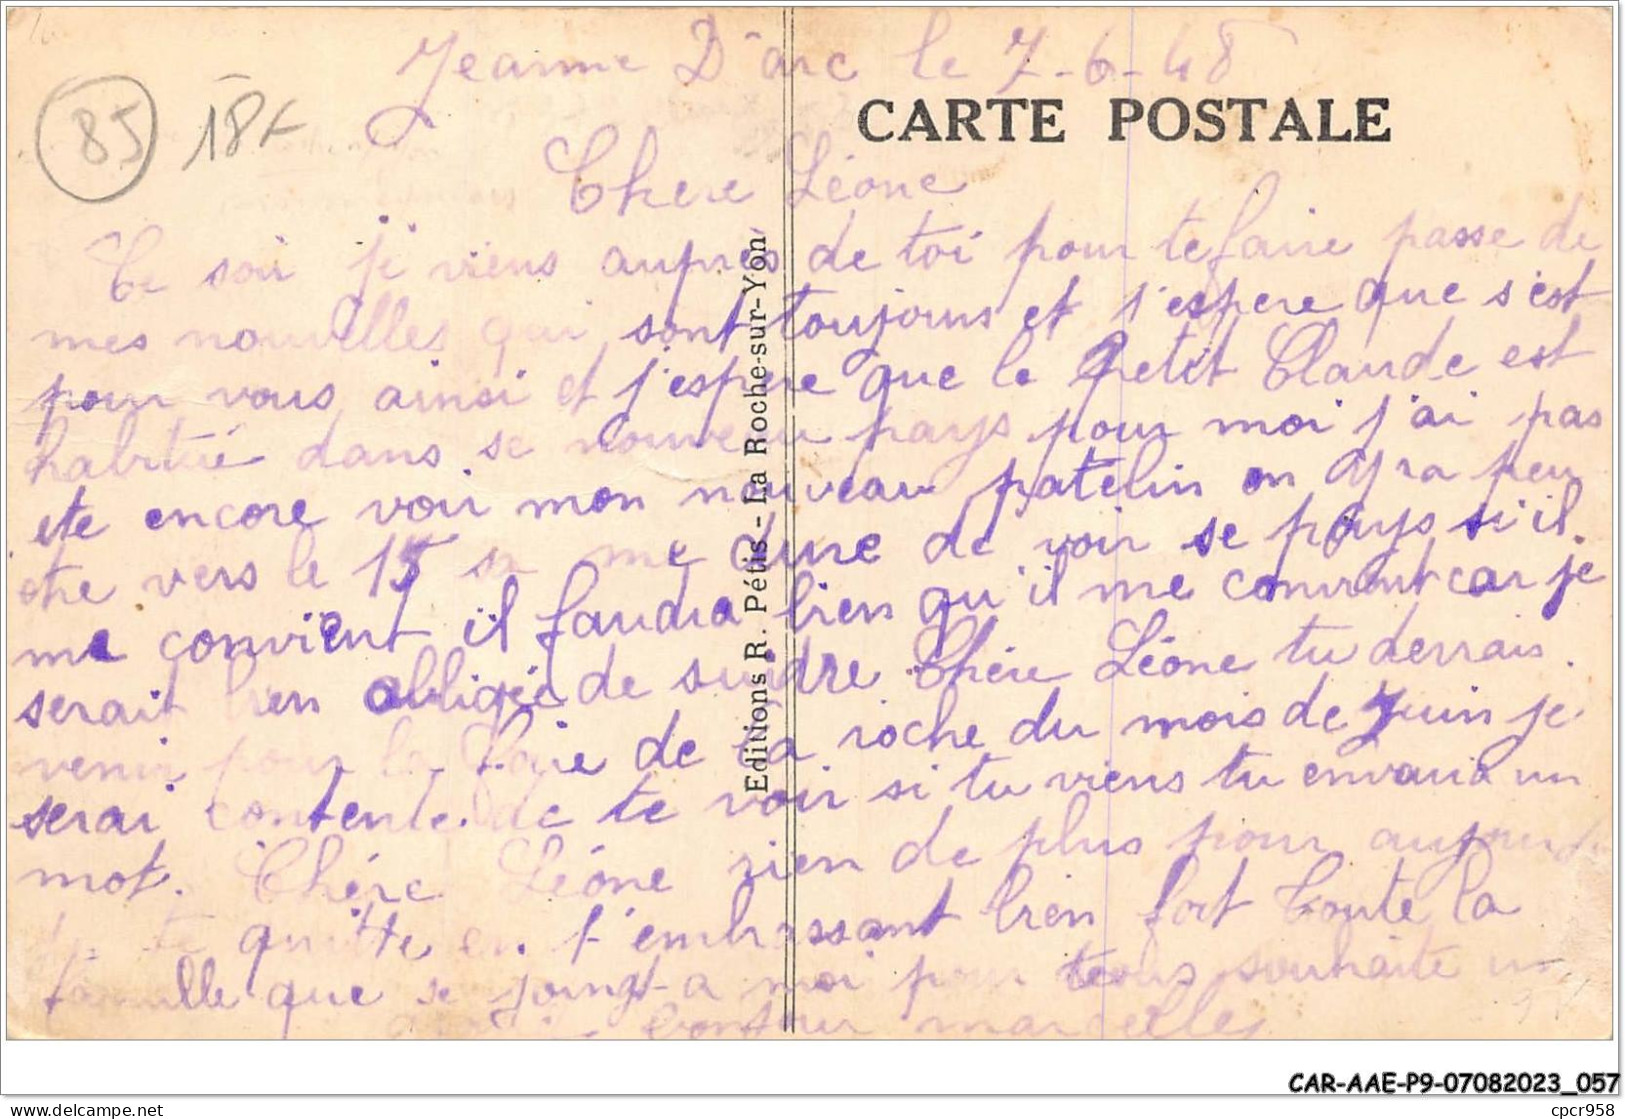 Jeanne D'arc le 7-6-48
85 18F
CARTE POSTALE
Chere Léone
Ce soir je viens auprès de toi pour te faire passe de
mes nouvelles qui sont toujours et j'espere que s'est
pour vous ainsi et j'espere que le petit Claude est
habitué dans se nouveau pays pour moi j'ai pas
ete encore voir mon nouveau patelin on yra peu
etre vers le 15 me dure de voir se pays si il
me convient il faudra bien qu'il me convient car je
serait bien obligée de suidre Chère Léone tu devrais
venir pour la foire de la roche du mois de Juin je
serai contente de te voir si tu viens tu envaira un
mot. Chère Léone rien de plus pour aujourd
je te quitte en t'embrassant bien fort toute la
famille que se joingt a moi pour souhaite un
bonjour marcelle
Editions R. Pétis - La Roche-sur-Yon
CAR-AAE-P9-07082023_057
www.delcampe.net
cpcr958